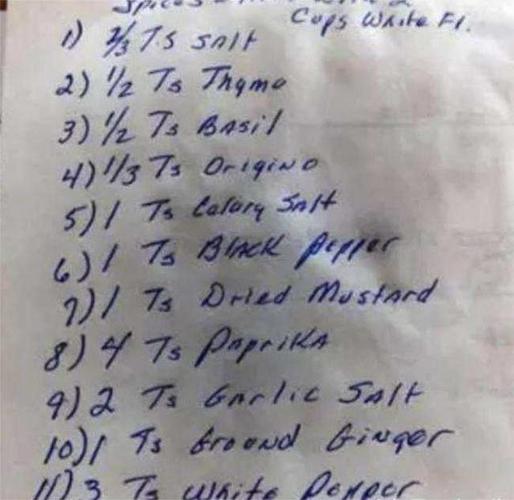 Spices
Cups White Fl.
1) 2/3 Ts Salt
2) 1/2 Ts Thyme
3) 1/2 Ts Basil
4) 1/3 Ts Origino
5) 1 Ts Calary Salt
6) 1 Ts Black Pepper
7) 1 Ts Dried Mustard
8) 4 Ts Paprika
9) 2 Ts Garlic Salt
10) 1 Ts Ground Ginger
11) 3 Ts White Pepper